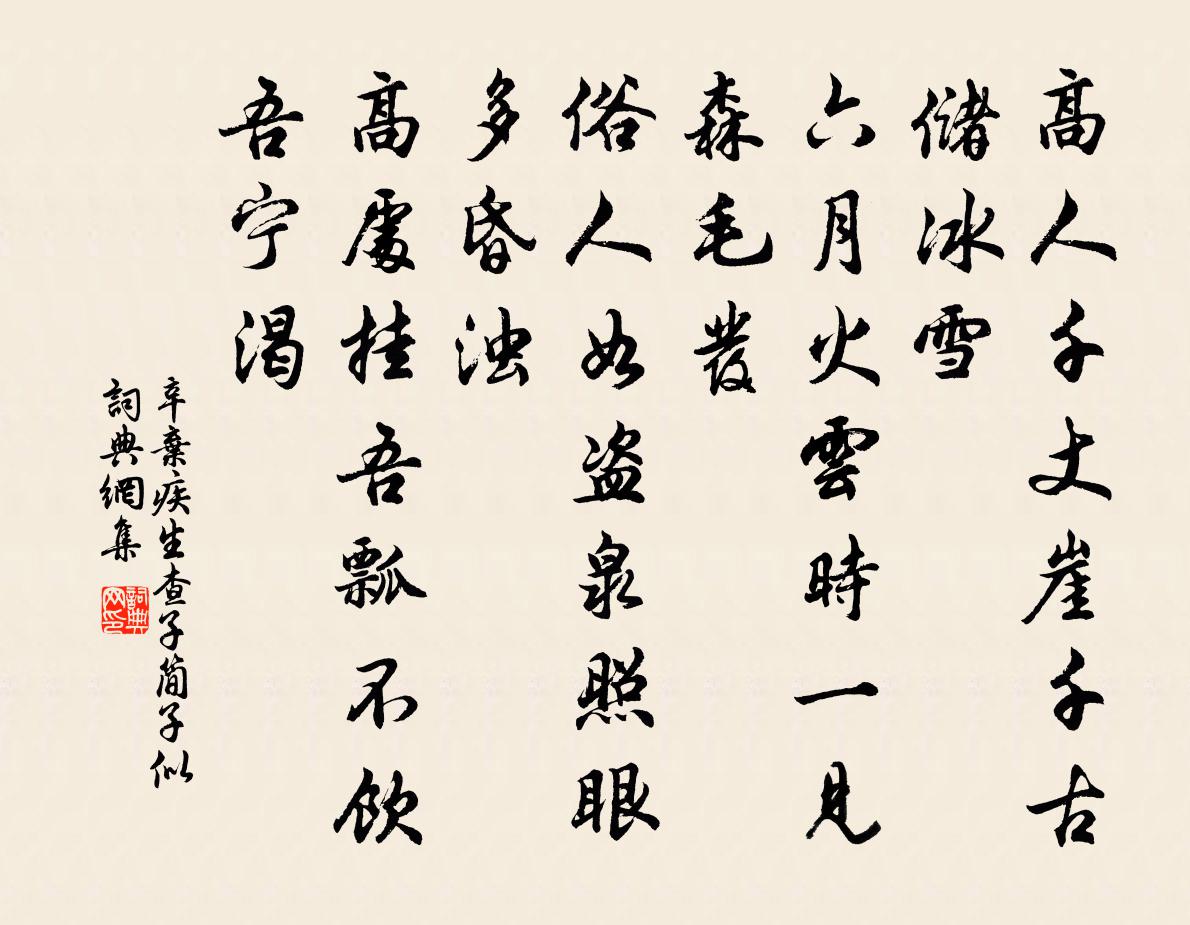 高人千丈崖千古
儲冰雪
六月火雲時一見
森毛發
俗人如盗泉照眼
多昏浊
高處挂吾瓢不飲
吾宁渴
辛棄疾生查子簡子似
詞典網集
詞典网印